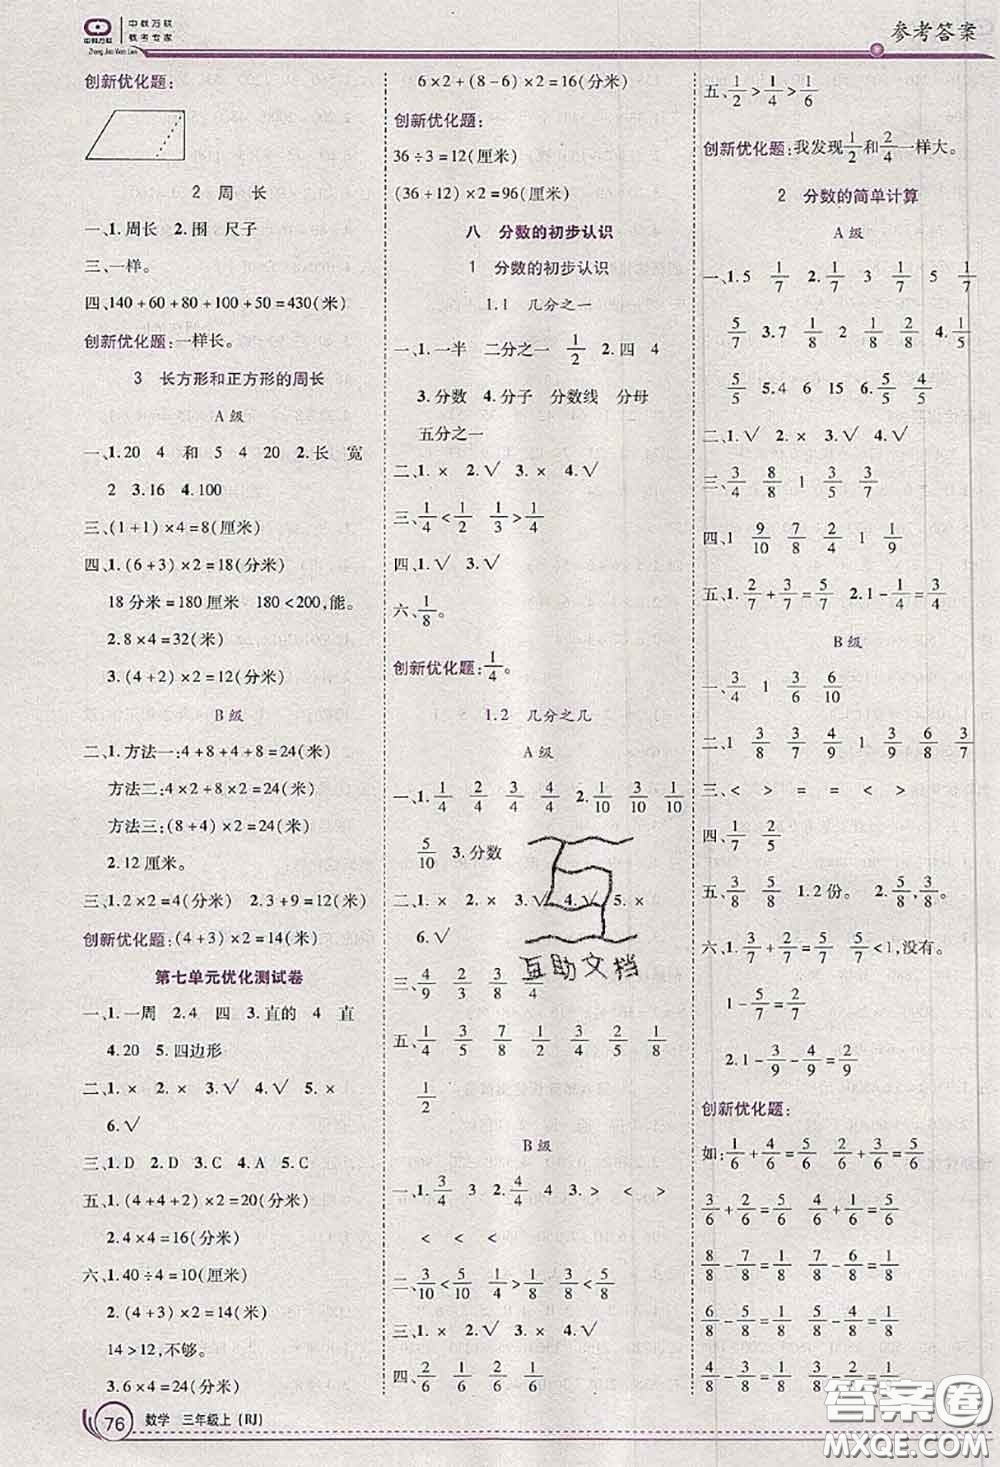 中教万联
教考专家
中教万联
Zhong Jiao Wan Lian
参考答案
创新优化题:
2 周 长
一、1.周长 2.围 尺子
三、一样。
四、140+60+80+100+50=430(米)
创新优化题:一样长。
3 长方形和正方形的周长
A级
一、1.20 4 和 5 4 20 2.长 宽
2 3.16 4.100
三、(1+1)×4=8(厘米)
四、1.(6+3)×2=18(分米)
18分米=180厘米 180<200,能。
2.8×4=32(米)
3.(4+2)×2=12(分米)
B级
二、1.方法一:4+8+4+8=24(米)
方法二:4×2+8×2=24(米)
方法三:(8+4)×2=24(米)
2.12厘米。
三、1.2×2=4(分米) 2.3+9=12(米)
创新优化题:(4+3)×2=14(米)
第七单元优化测试卷
一、1.一周 2.4 四 3.直的 4 直
4.20 5.四边形
二、1.× 2.× 3.√ 4.√ 5.×
6.√
三、1.D 2.D 3.C 4.A 5.C
五、1.(4+4+2)×2=20(分米)
2.4×4=16(分米)
六、1.40÷4=10(厘米)
2.(4+3)×2=14(米)
14>12,不够。
3.6×4=24(分米)
6×2+(8-6)×2=16(分米)
创新优化题:
36÷3=12(厘米)
(36+12)×2=96(厘米)
八 分数的初步认识
1 分数的初步认识
1.1 几分之一
一、1.一半 二分之一 1/2 2.四 4
3.分数 4.分子 分数线 分母
五分之一
二、1.× 2.√ 3.× 4.√
三、1/4<1/2 1/3>1/4
四、1.√ 3.√
六、1/8。
创新优化题:1/4。
1.2 几分之几
A级
一、1.1/4 2/4 3/4 4/4 2.1/10 3/10 1/10
5/10 3.分数
二、1.√ 2.× 3.√ 4.√ 5.×
6.√
三、4/9 2/3 3/8 3/4
五、1/4 3/5 7/8 1/2 2/5 1/8
1/2
B级
一、1.3/4 3 2.4/4 4 3.> < >
< < <
二、3/10<5/10 1/4>1/8 3/8<5/8
三、1.× 2.√ 3.√ 4.×
四、2/6 1/6 2/6 1/6
五、1/2>1/4>1/6
创新优化题:我发现1/2和2/4一样大。
2 分数的简单计算
A级
一、1.5 1/7 2.1/7 3 1/7 5 1/7
5/7 3.7 1/8 2 1/8 9/8 4.1/5
5/5 5.4 6 15 6.5/5 4/5
二、1.√ 2.× 3.√ 4.√
三、3/4 8/8 1 3/5 3/7
四、1 9/10 7/8 2/4 1 1/9
五、1.2/7+3/7=5/7 2.1-1/4=3/4
B级
一、3/4 1 3/6 6/10
二、1 3/8 7/7 3/9 6/8 3/7
三、< > = = < >
四、1/7 2/5
五、3/8 5/8 1.2份。 2.5/8
六、1.2/7+3/7=5/7 5/7<1,没有。
1-5/7=2/7
2.1-3/9-4/9=2/9
创新优化题:
如:1/6+4/6=5/6 2/6+3/6=5/6
3/6+2/6=5/6 4/6+1/6=5/6
8/8-7/8=1/8 7/8-6/8=1/8
6/8-5/8=1/8 5/8-4/8=1/8
4/8-3/8=1/8 2/8-1/8=1/8
互助文档
76 数学 三年级上(RJ)
答案圈
MXQE.COM